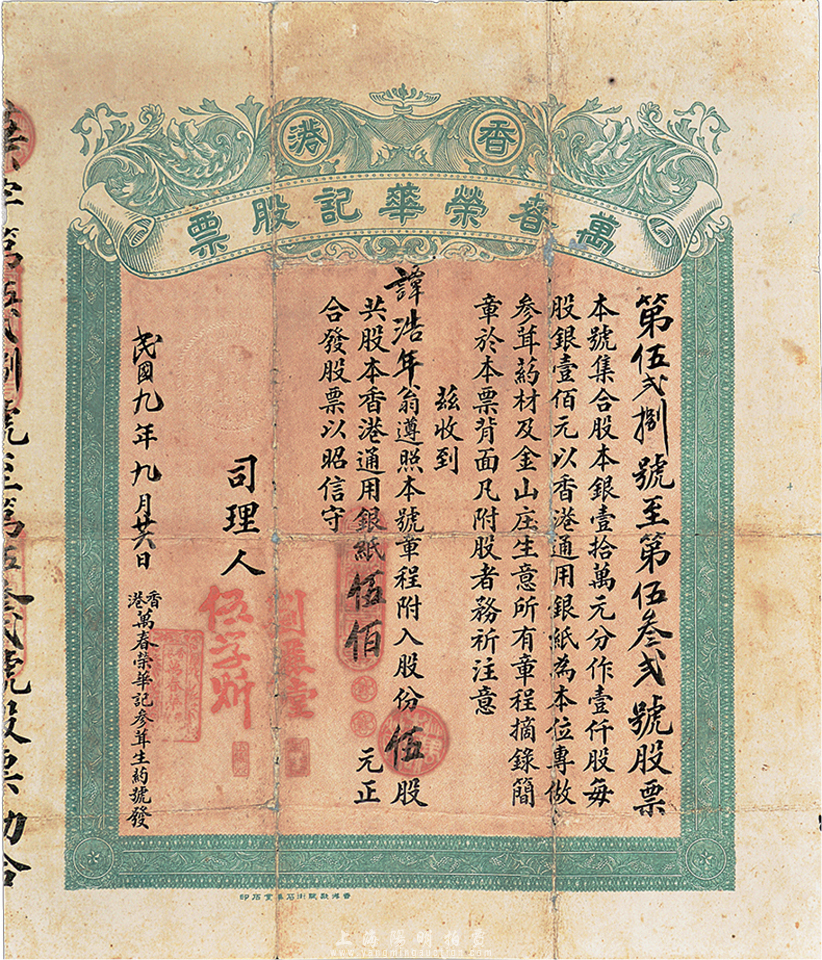 香港
萬春榮華記股票
第伍弍捌號至第伍叁弍號股票
本號集合股本銀壹拾萬元分作壹仟股每
股銀壹佰元以香港通用銀紙為本位專做
參茸葯材及金山庄生意所有章程摘錄簡
章於本票背面凡附股者務祈注意
茲收到
譚浩年翁遵照本號章程附入股份伍股
共股本香港通用銀紙伍佰元正
合發股票以昭信守
司理人
民國九年九月廿六日
香港萬春榮華記參茸生葯號發
字第伍弍捌號至第伍叁弍號股票勘合
上海陽明拍賣
www.yangmingauction.com